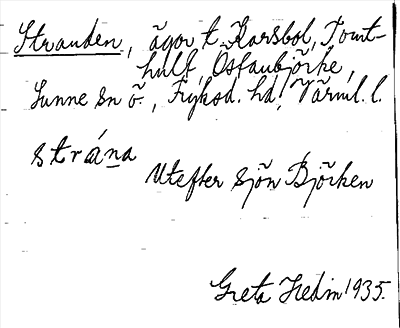 Stranden, ägor t. Karsbol, Tomt-
hult, Östanbjörke,
Sunne sn ö., Fryksd. hd, Värml. l.
strána
Utefter sjön Björken
Greta Hedin 1935.